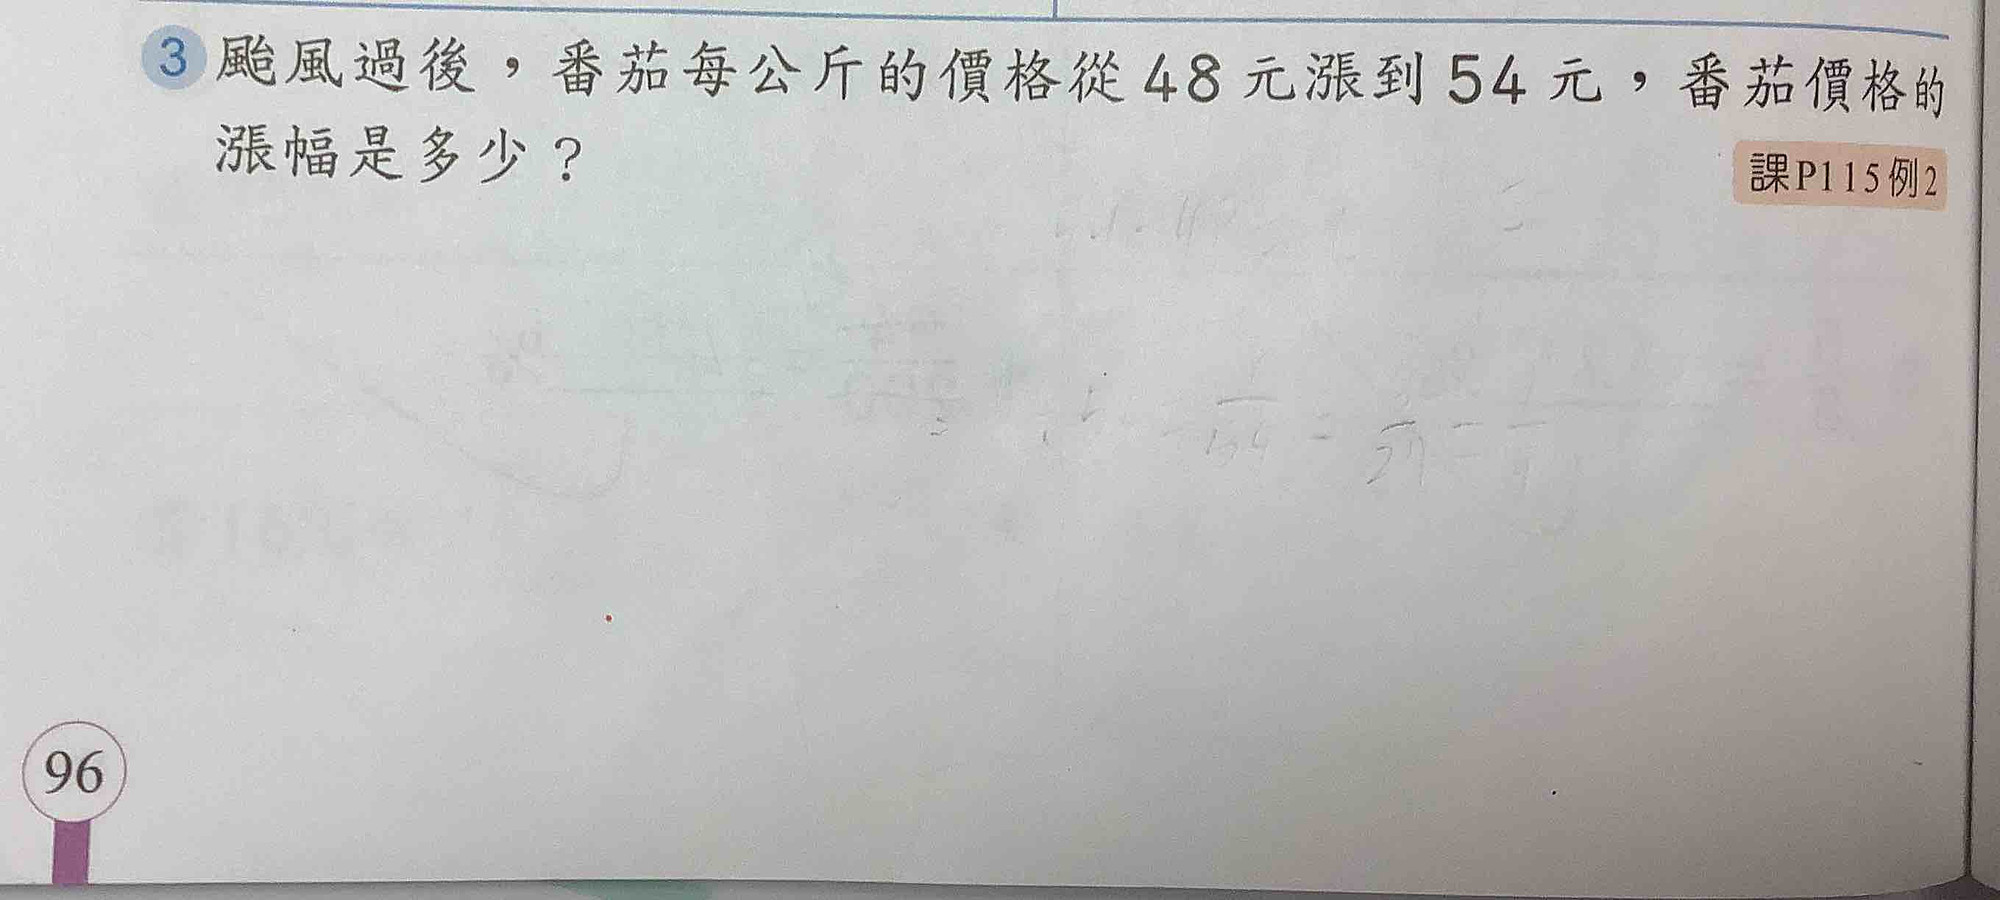 3 颱風過後，番茄每公斤的價格從48元漲到54元，番茄價格的
漲幅是多少？
課P115例2
96